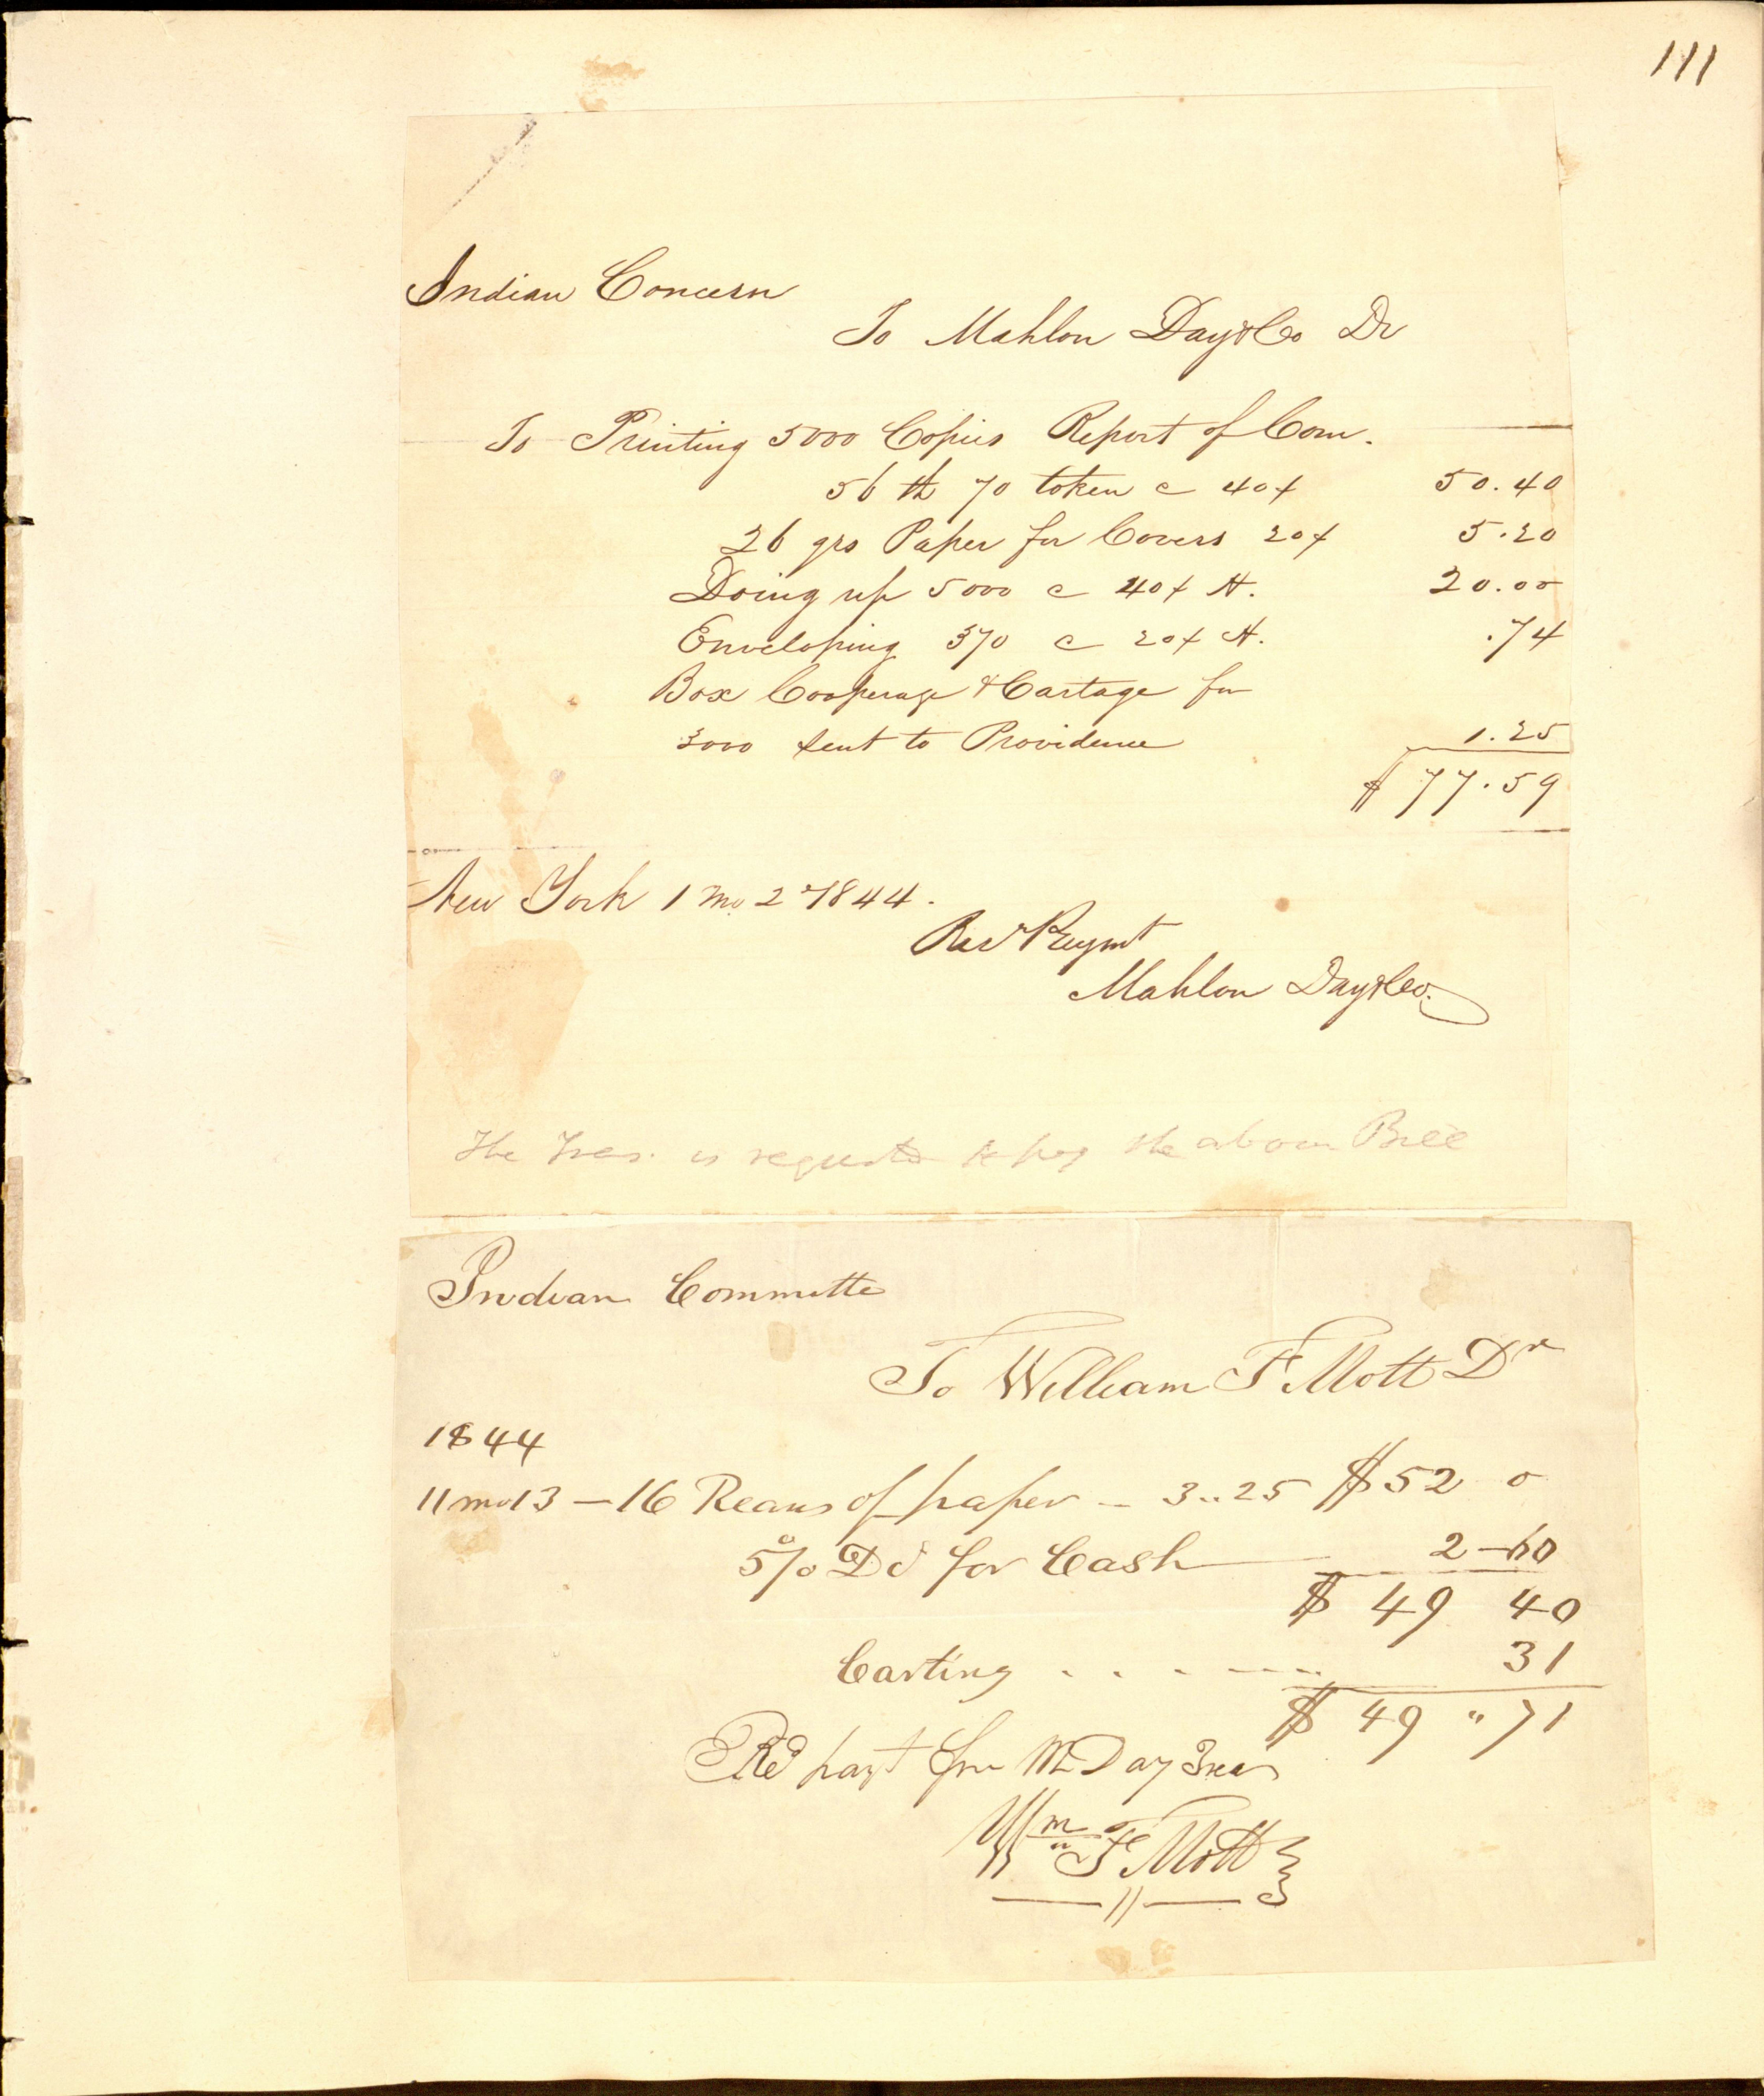 111
Indian Concern
To Mahlon Day & Co Dr
To Printing 5000 Copies Report of Com.
56 70 token 40 50.40
26 qrs Paper for Covers 20 5.20
Doing up 5000 @ 40 H. 20.00
Enveloping 370 @ 20 H. .74
Box Cooperage & Cartage for
3000 sent to Providence 1.25
$ 77.59
New York 1 mo 2 1844.
Recd Paymt
Mahlon Day & Co.
The Tres. is requested to pay the above Bill
Indian Committe
To William F Mott Dr
1844
11 mo 13 — 16 Reams of paper — 3..25 $52 0
5 % Dd for Cash 2–60
$ 49 40
Carting . . . ---.. 31
$ 49 " 71
Recd payt from M Day Trea
Wm F Mott